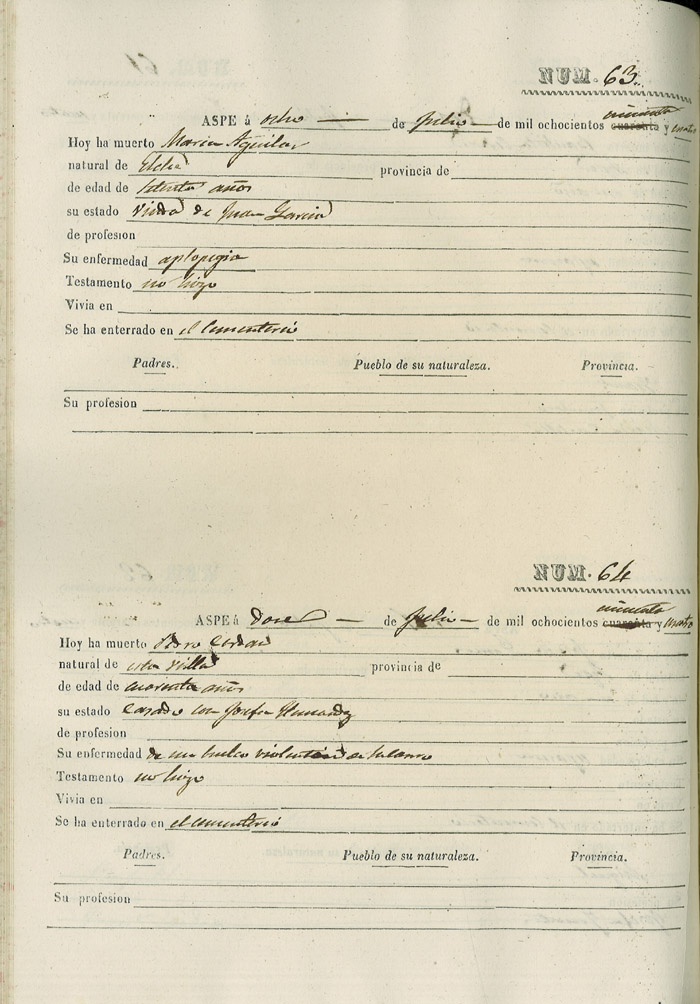 NUM. 63.
cincuenta
ASPE á ocho de Julio de mil ochocientos cuarenta y cuatro
Hoy ha muerto Maria Aguilar
natural de Elche provincia de
de edad de setenta años
su estado viuda de Juan Garcia
de profesion
Su enfermedad aplopegia
Testamento no hizo
Vivia en
Se ha enterrado en el Cementerio
Padres. Pueblo de su naturaleza. Provincia.
Su profesion
NUM. 64
cincuenta
ASPE á doce de Julio de mil ochocientos cuarenta y cuatro
Hoy ha muerto Pedro
natural de esta villa provincia de
de edad de cuarenta años
su estado casado con Josefa Hernandez
de profesion
Su enfermedad de un
Testamento no hizo
Vivia en
Se ha enterrado en el cementerio
Padres. Pueblo de su naturaleza. Provincia.
Su profesion